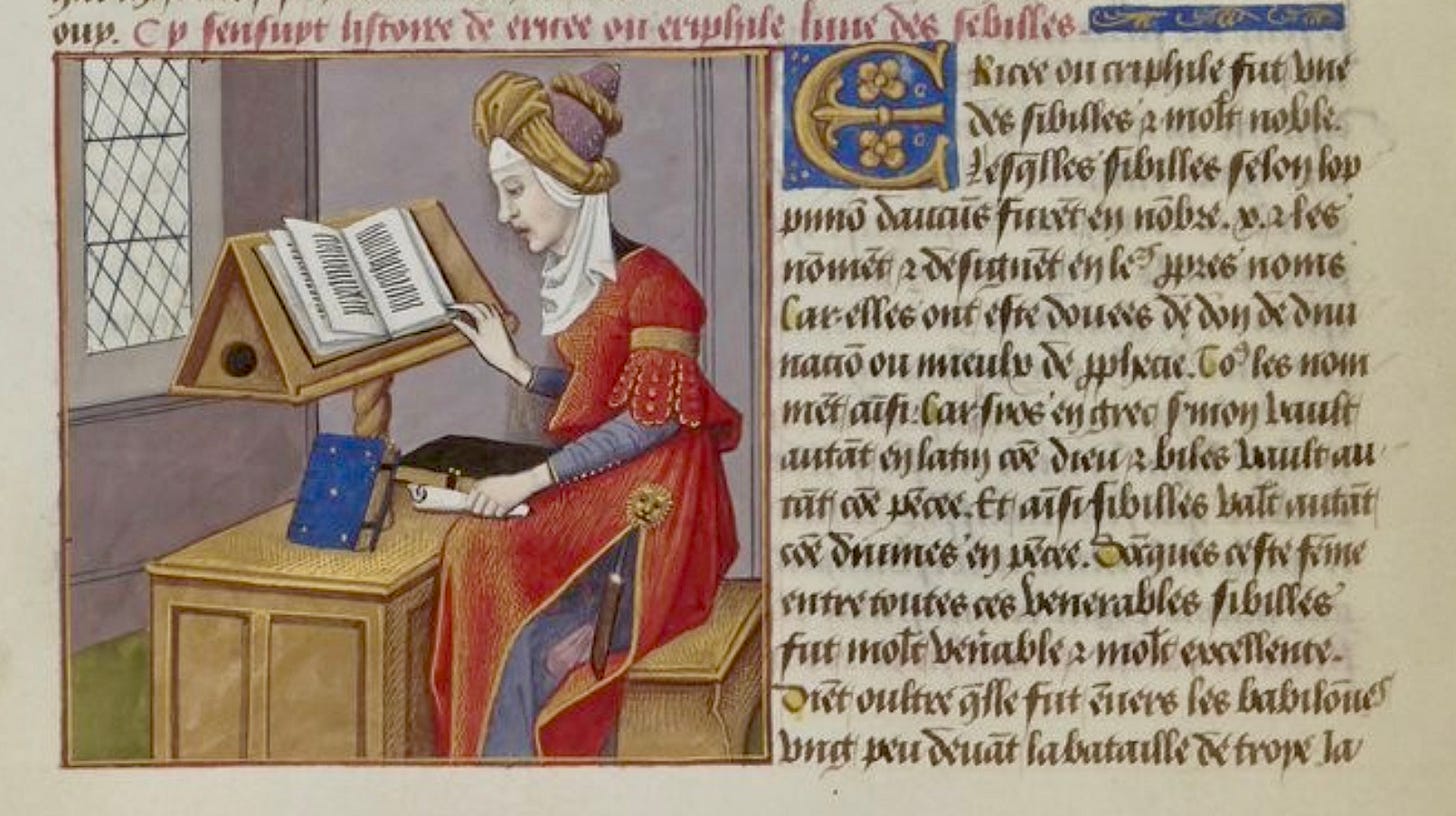 ouy. Cy sensuyt listoire de ericee ou eriphile lune des sebilles.
Ericee ou eriphile fut vne
des sibilles ⁊ molt noble.
Lesqlles sibilles selon lop
pinio daucuns furet en nobre .x. ⁊ les
nomet ⁊ designet en le's ppres noms
Car elles ont este douees de don de diui
natio ou mieulx de pphecie. To9 les nom
met aisi. Car syos en grec smon vault
autat en latin coe dieu ⁊ biles vault au
tat coe pesee. Et aisi sibilles valt autat
coe diuines en pesee. Docques ceste feme
entre toutes ces venerables sibilles
fut molt venable ⁊ molt excellente.
Diet oultre qlle fut enuers les babilones
vng peu deuat la bataille de troye la